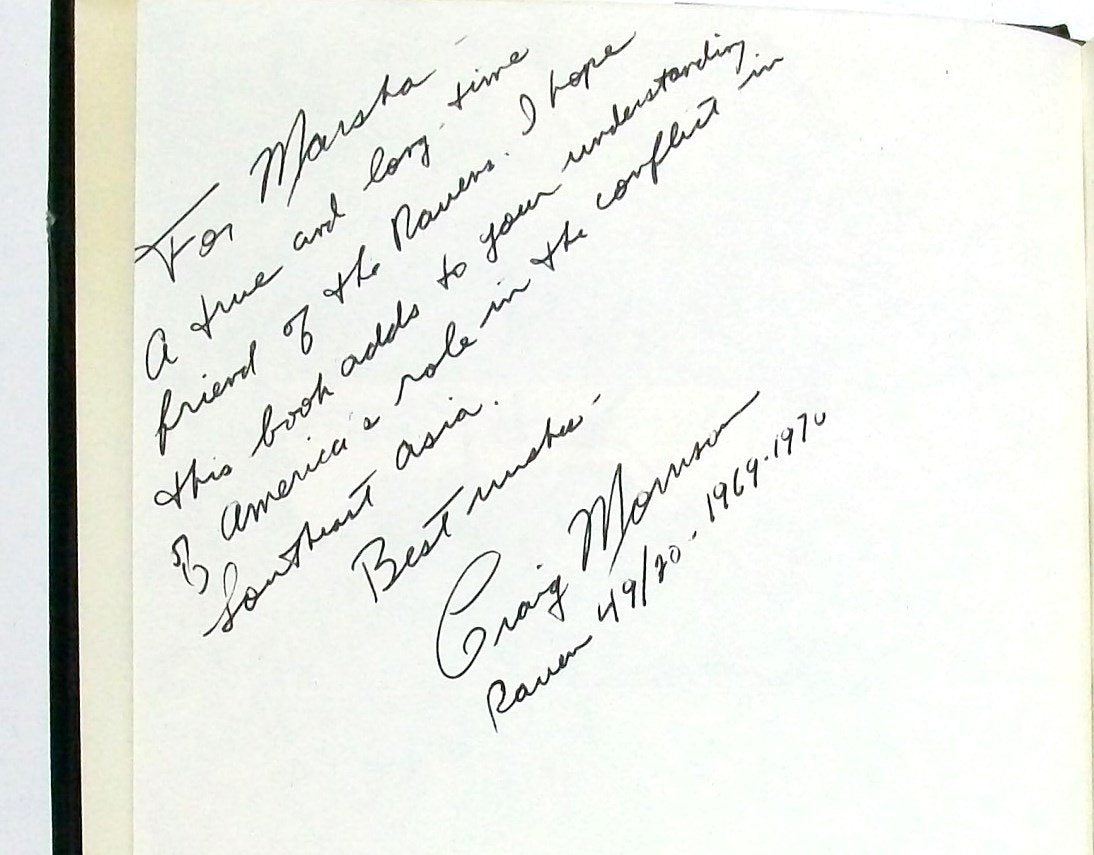 For Marsha
A true and long-time
friend of the Ravens. I hope
this book adds to your understanding
of America's role in the conflict in
Southeast Asia.
Best wishes-
Craig Morrison
Raven 49/20. 1969-1970